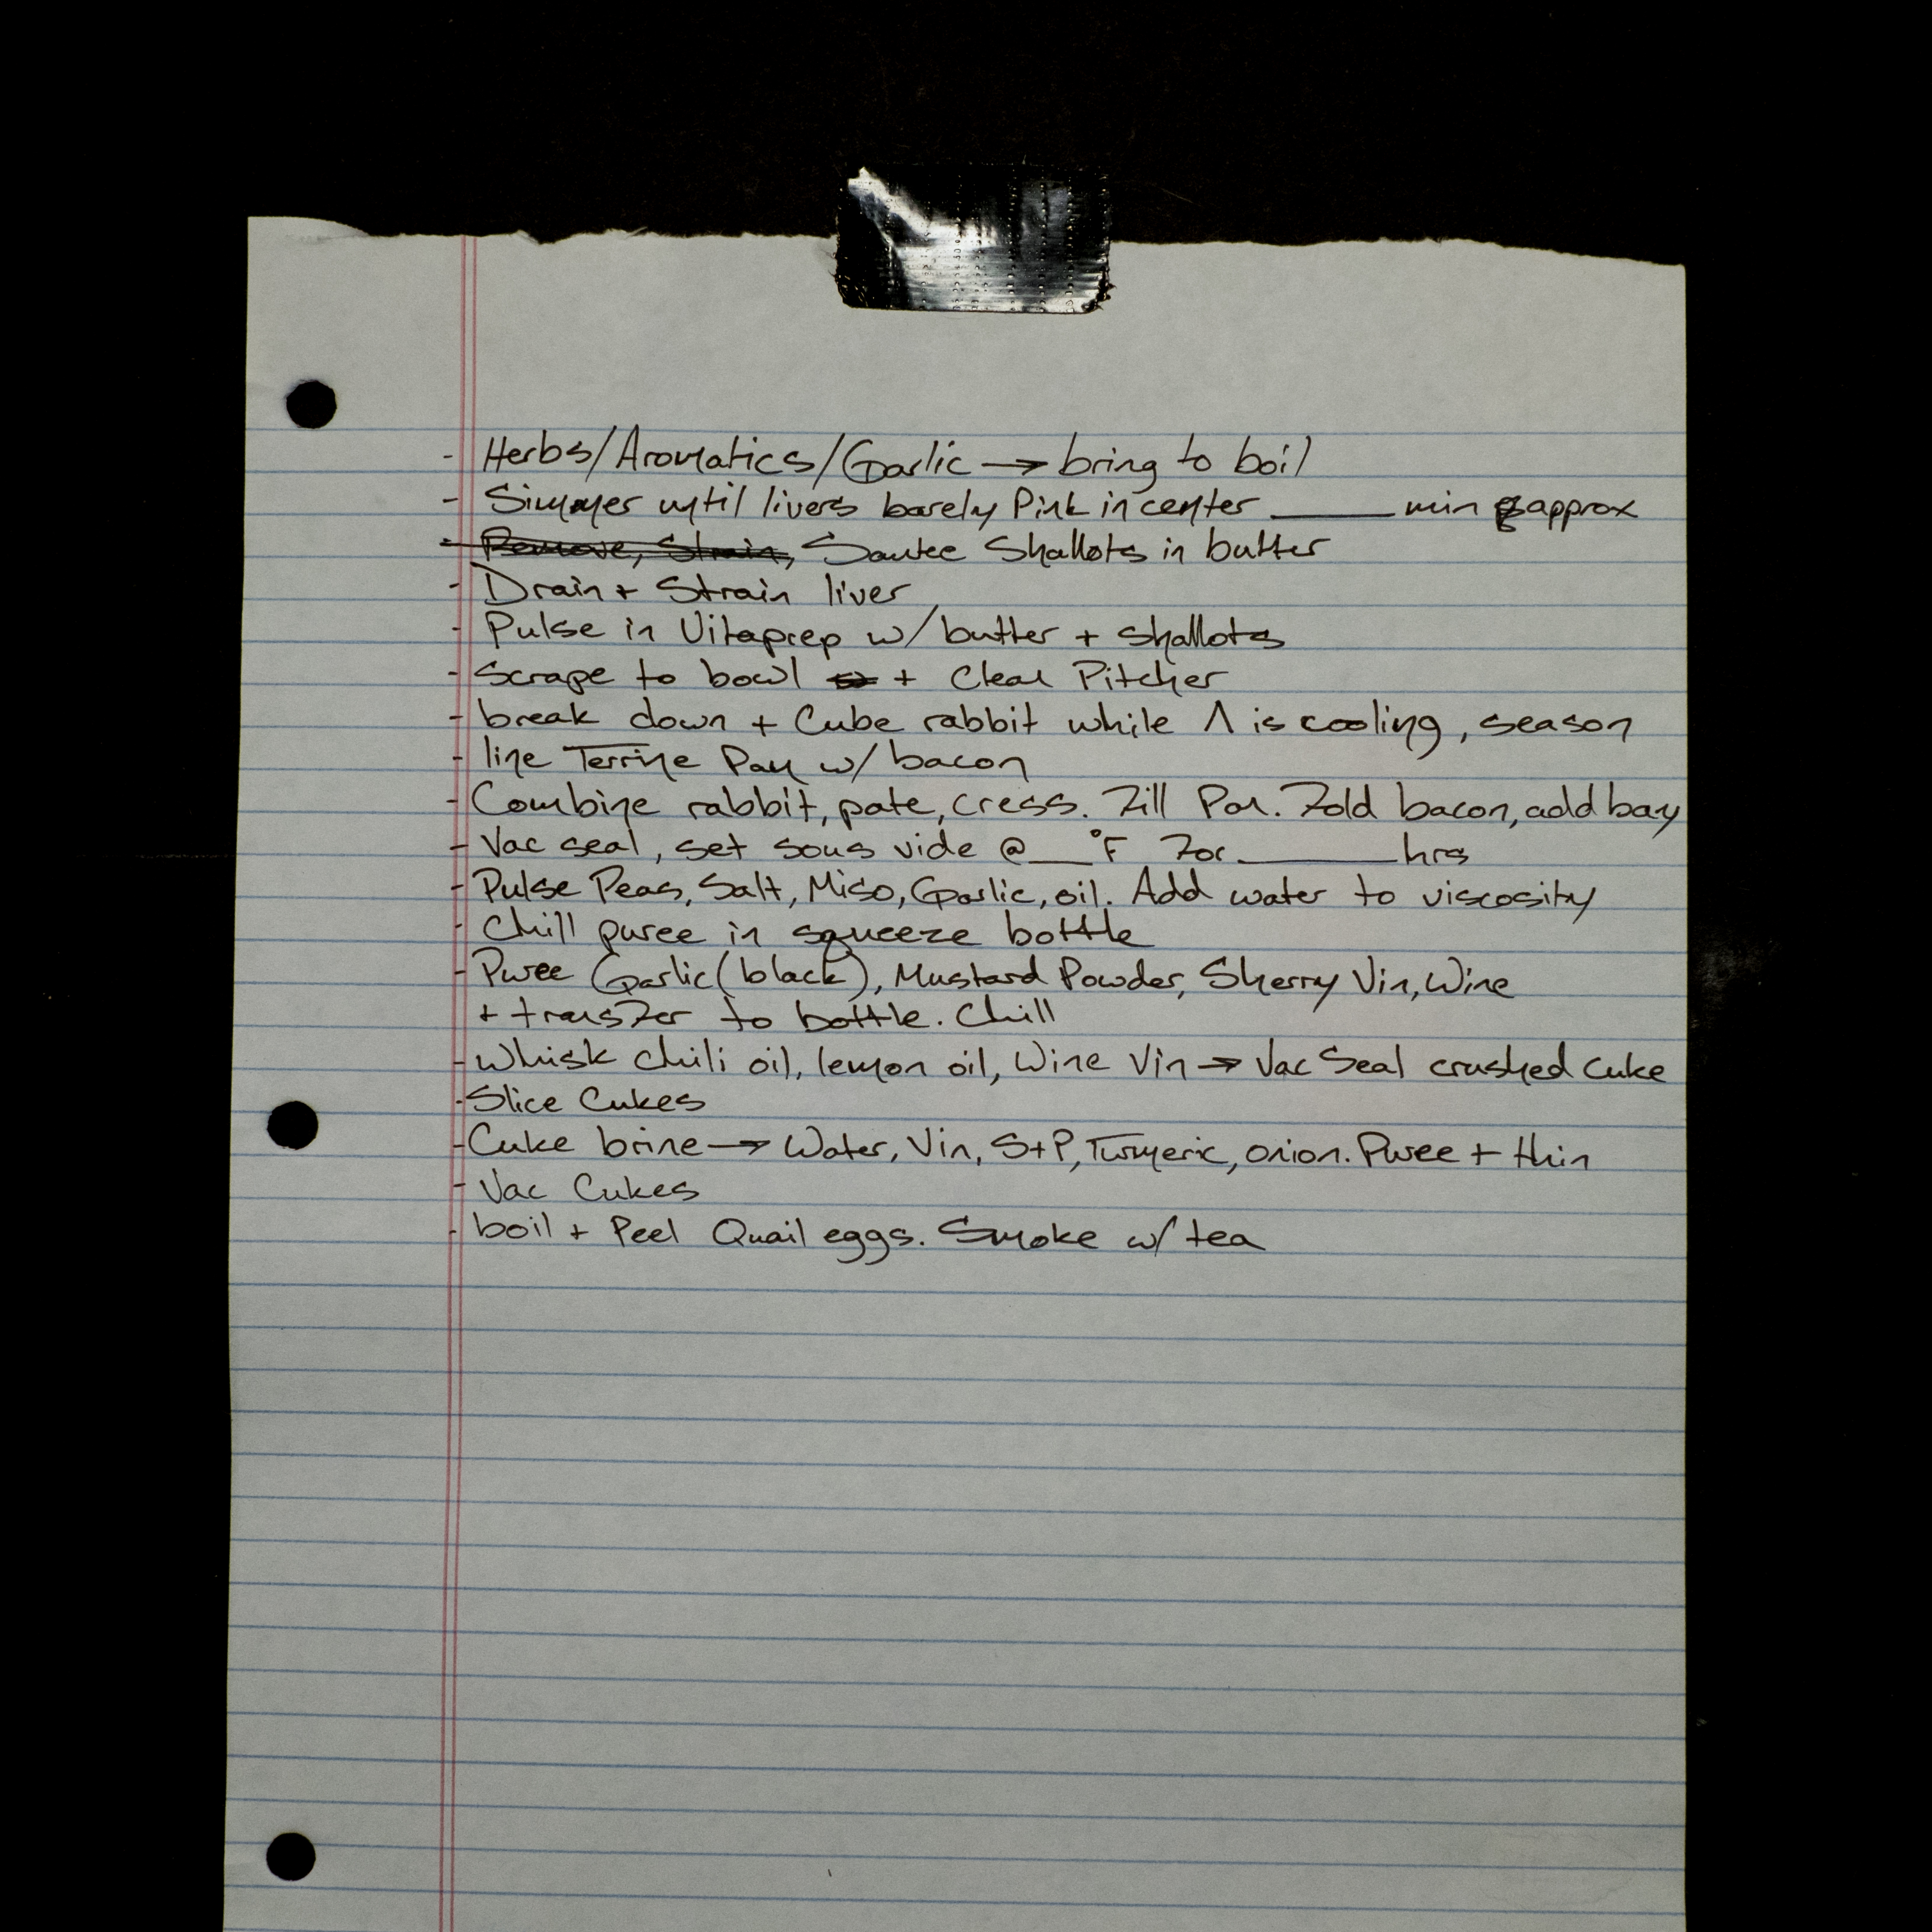 - Herbs/Aromatics/Garlic → bring to boil
- Simmer until livers barely Pink in center _____ min approx
- Remove, Strain, Sautee Shallots in butter
- Drain + Strain liver
- Pulse in Vitaprep w/ butter + shallots
- Scrape to bowl + Clean Pitcher
- break down + Cube rabbit while Λ is cooling, season
- line Terrine Pan w/ bacon
- Combine rabbit, pate, cress. Fill Pan. Fold bacon, add bay
- Vac seal, set sous vide @ __°F For ______ hrs
- Pulse Peas, Salt, Miso, Garlic, oil. Add water to viscosity
- Chill puree in squeeze bottle
- Puree Garlic (black), Mustard Powder, Sherry Vin, Wine
+ transfer to bottle. Chill
- Whisk chili oil, lemon oil, Wine Vin → Vac Seal crushed cuke
- Slice Cukes
- Cuke brine → Water, Vin, S+P, Turmeric, onion. Puree + thin
- Vac Cukes
- boil + Peel Quail eggs. Smoke w/ tea